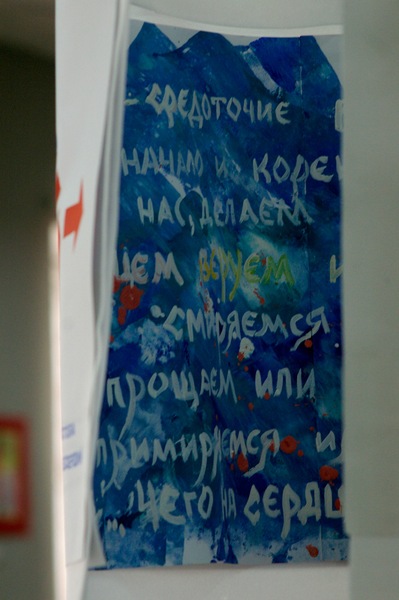 - средоточие
начало и корен
нас, делаем
чем веруем и
смиряемся
прощаем или
примиряемся и
... чего на сердц